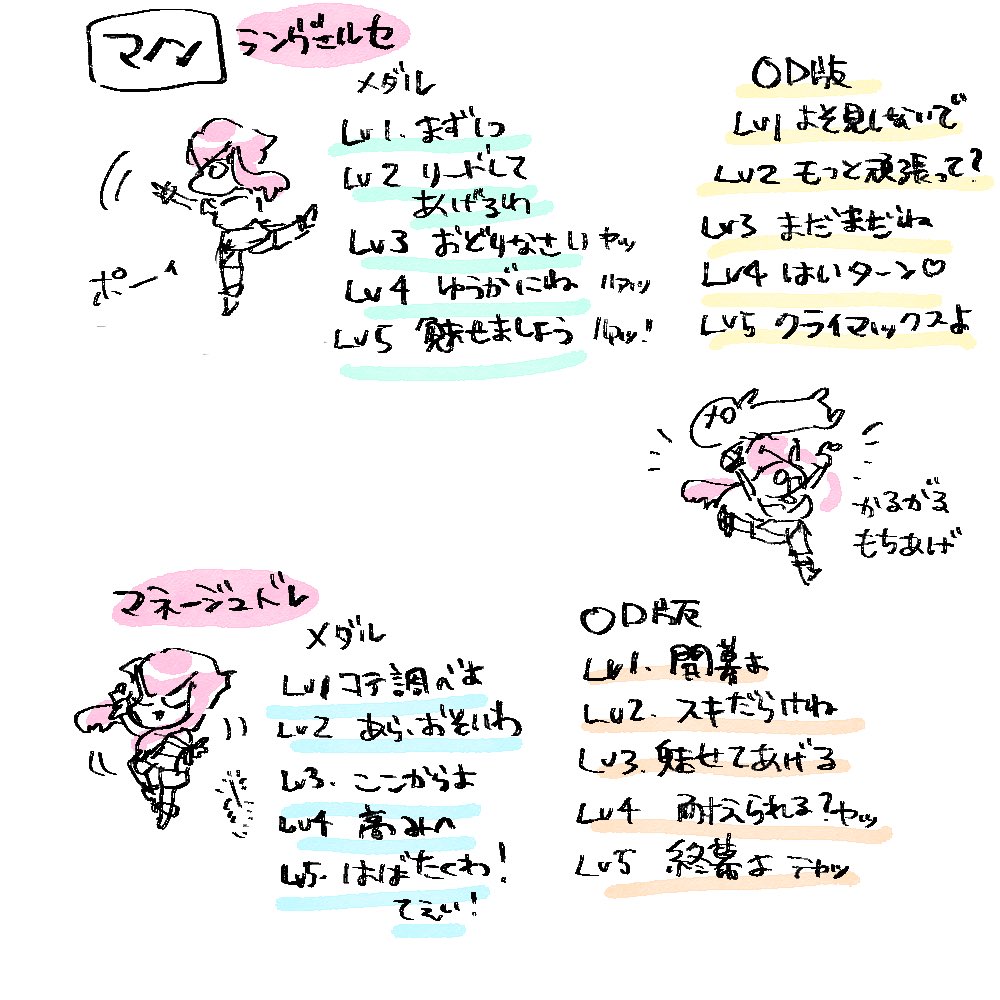 マノン
ランヴェルセ
メダル
Lv1. まずしっ
Lv2 リードして
あげるわ
Lv3 おどりなさい ヤッ
Lv4 ゆうがにね ハァッ
Lv5 魅せましょう ハァッ!
ポーイ
OD版
Lv1 よそ見しないで
Lv2 もっと頑張って?
Lv3 まだまだね
Lv4 はいターン♡
Lv5 クライマックスよ
かるがる
もちあげ
マネージュドレ
メダル
Lv1 コテ調べよ
Lv2 あら、おそいわ
Lv3. ここからよ
Lv4 高みへ
Lv5. はばたくわ!
てえい!
OD版
Lv1. 開幕よ
Lv2. スキだらけね
Lv3. 魅せてあげる
Lv4 耐えられる?ヤッ
Lv5 終幕よ テヤッ